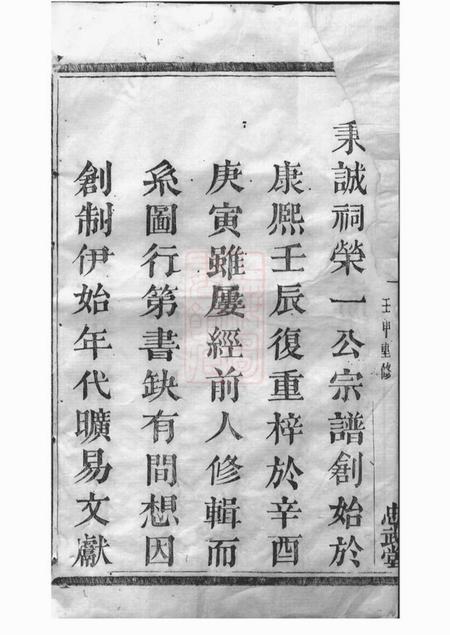 壬申重修
忠武堂
秉誠祠榮一公宗譜創始於
康熙壬辰復重梓於辛酉
庚寅雖屢經前人修輯而
系圖行第書缺有間想因
創制伊始年代曠易文獻